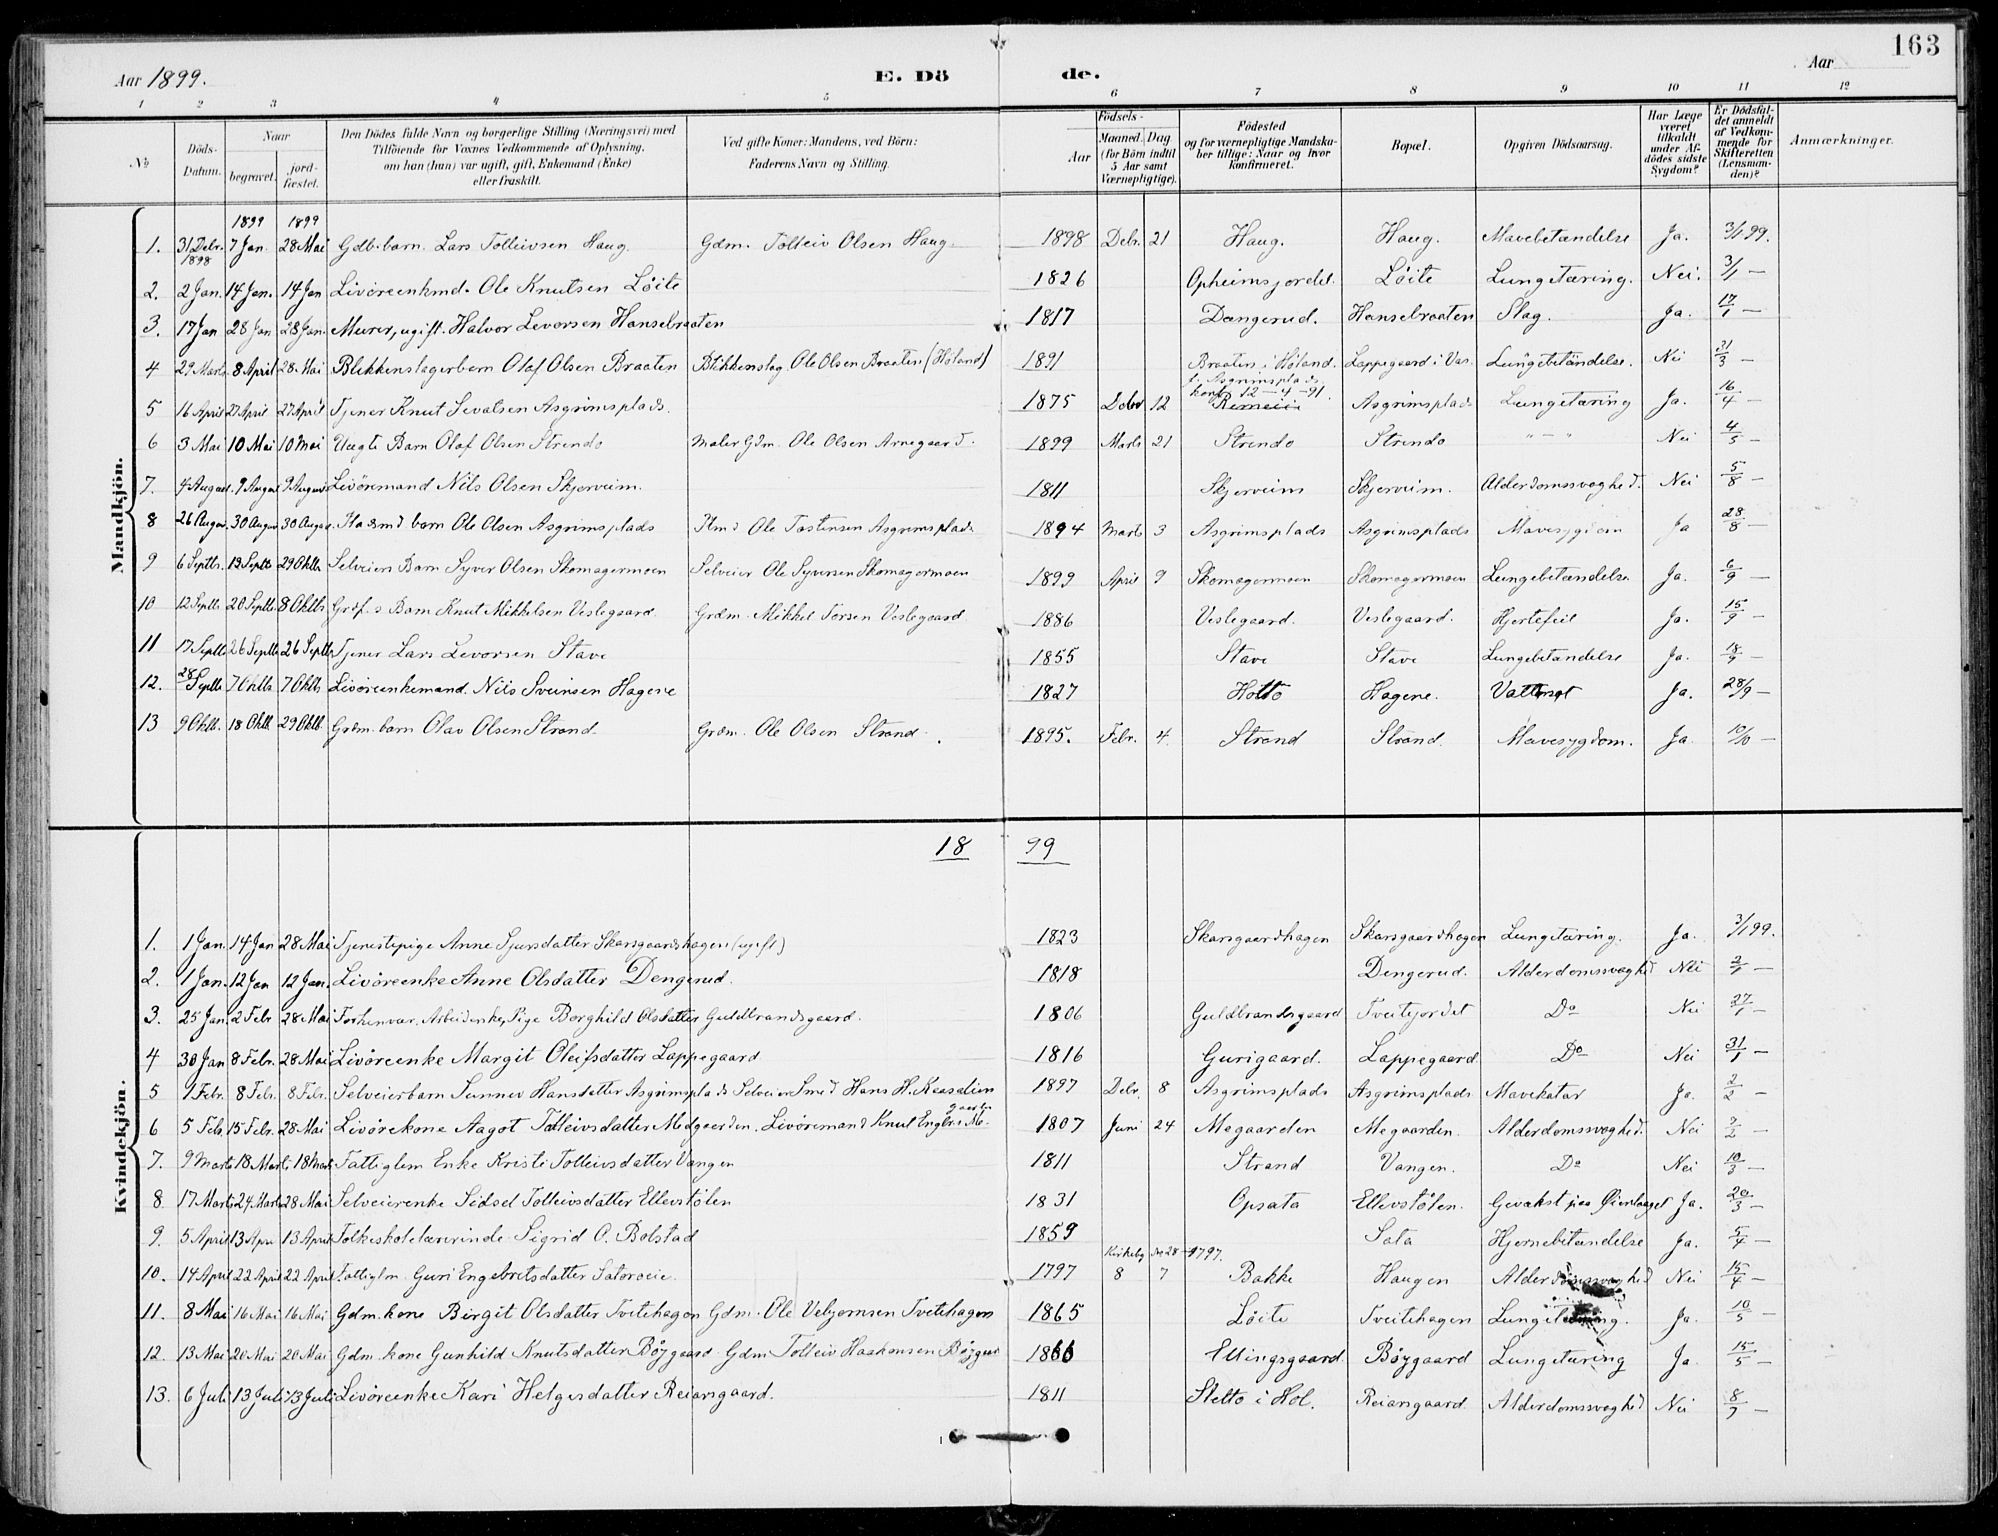 163
Aar 1899.
E. Dö de.
Aar
1 2 3 4 5 6 7 8 9 10 11 12
No
Döds-Datum.
Naar
begravet.
jord-fæstet.
Den Dödes fulde Navn og borgerlige Stilling (Næringsvei) med Tilföiende for Voxnes Vedkommende af Oplysning, om han (hun) var ugift, gift, Enkemand (Enke) eller fraskilt.
Ved gifte Koner: Mandens, ved Börn: Faderens Navn og Stilling.
Födsels-
Aar
Maaned. Dag
(for Börn indtil 5 Aar samt Værnepligtige).
Födested og for værnepligtige Mandskaber tillige: Naar og hvor konfirmeret.
Bopæl.
Opgiven Dödsaarsag.
Har Læge været tilkaldt under Afdödes sidste Sygdom?
Er Dödsfaldet anmeldt af Vedkommende for Skifteretten (Lensmanden)?
Anmærkninger.
Mandkjön.
1899 1899
1. 31 Debr. 1898 7 Jan. 28 Mai Gdb. barn. Lars Tolleivsen Haug. Gdm. Tolleiv Olsen Haug. 1898 Debr. 21 Haug. Haug. Mavebetændelse Ja. 3/1 99.
2. 2 Jan. 14 Jan. 14 Jan Livöreenkmd. Ole Knutsen Löite 1826 Opheimsjordet. Löite Lungetæring. Nei. 3/1 —
3. 17 Jan 28 Jan 28 Jan. Murer, ugift. Halvor Levorsen Hansebraaten 1817 Dængerud. Hansebraaten Slag. Ja. 17/1 —
4 29 Marts 8 April 28 Mai Blikkenslagerbarn Olaf Olsen Braaten Blikkenslag. Ole Olsen Braaten (Höland) 1891 Braaten i Höland. Lappegaard i Vas. Lungebetændelse. Nei 31/3 —
5 16 April 27 April 27 April Tjener Knut Sevatsen Asgrimsplads. 1875 Debr 12 f. Asgrimsplads konf. 12-4-91. Asgrimsplads Lungetæring Ja. 16/4 —
6 3 Mai 10 Mai 10 Mai Uægte Barn Olaf Olsen Strendo Maler Gdm. Ole Olsen Arnegaard. 1899 Marts 21 Strendo Strendo " — " Nei 4/5 —
7. 4 August 9 August 9 August Livöremand Nils Olsen Skjerveim. 1811 Skjerveim Skjerveim. Alderdomssvaghed. Nei 5/8 —
8 26 Augus. 30 Augus 30 Augus. Husmd barn Ole Olsen Asgrimsplads Hmd Ole Tostensen Asgrimsplads 1894 Marts 3 Asgrimsplads Asgrimsplads Mavesygdom Ja 28/8 —
9 6 Septbr. 13 Septb 29 Oktb Selveiers Barn Syver Olsen Skomagermoen Selveier Ole Syversen Skomagermoen 1899 April 9 Skomagermoen Skomagermoen Lungebetændelse Ja. 6/9 —
10 12 Septb 20 Septb 8 Oktb Grdb.s Barn Knut Mikkelsen Veslegaard. Grdm. Mikkel Torsen Veslegaard. 1886 Veslegaard. Veslegaard. Hjertefeil Ja. 15/9 —
11 17 Septb 26 Septb 26 Septb Tjener Lars Levorsen Stave 1855 Stave Stave Lungebetændelse Ja. 18/9 —
12. 28 Septb 7 Oktb 7 Oktb Livöreenkemand. Nils Sveinsen Hagene 1827 Holto Hagene. Vattersot Ja. 28/9 —
13 9 Oktb. 18 Oktb 29 Oktb Grdm. barn Olav Olsen Strand. Grdm. Ole Olsen Strand. 1895. Febr. 4. Strand Strand. Mavesygdom. Ja 10/10 —
18 99
Kvindekjön.
1. 1 Jan. 14 Jan 28 Mai Tjenestepige Anne Sjursdatter Skarsgaardshagen (ugift) 1823 Skarsgaardhagen Skarsgaardhagen Lungetæring. Ja. 3/1 99.
2. 1 Jan. 12 Jan 12 Jan. Livöreenke Anne Olsdatter Dengerud. 1818 Dengerud. Alderdomssvaghed Nei 2/1 —
3. 25 Jan. 2 Febr. 28 Mai Forhenvær. Arbeidenke, Pige Borghild Olsdatter Guldbrandsgaard. 1806 Guldbrandsgaard Tveitejordet Do Nei 27/1 —
4 30 Jan 8 Febr. 28 Mai Livöreenke Margit Oleifsdatter Lappegaard 1816 Gurigaard. Lappegaard Do Nei 31/1 —
5 1 Febr. 8 Febr. 8 Febr. Selveierbarn Sunnev Hansdatter Asgrimsplads Selveier Smed Hans H. Kaasalien 1897 Debr. 8 Asgrimsplads Asgrimsplads Mavekatar Ja. 2/2 —
6 5 Febr. 15 Febr. 28 Mai Livörekone Aagot Tolleivsdatter Medgaarden. Livöremand Knut Engbr.s Me-gaarden 1807 Juni 24 Megaarden Megaarden. Alderdomssvaghed. Nei 9/2 —
7. 9 Marts 18 Marts 18 Marts Fattiglem Enke Kristi Tolleivsdatter Vangen 1811 Strand Vangen. Do Nei 10/3 —
8 17 Marts 24 Marts 28 Mai Selveierenke Sidsel Tolleivsdatter Ellevstölen 1831 Opsata Ellevstölen. Gevækst paa Öienlaaget Ja. 20/3 —
9. 5 April 13 Apri 13 April Folkeskolelærerinde Sigrid O. Bolstad 1859 Sata Hjernebetændelse Ja. 5/4 —
10. 14 April 22 April 22 April Fattiglm. Guri Engebretsdatter Sataroeie. 1797 Kirkebg No 28-1797. 8 7 Bakke Haugen Alderdomssvaghed Nei 15/4 —
11. 8 Mai 16 Mai 16 Mai Gdm. kone Birgit Olsdatter Tveitehagen Gdm. Ole Vebjørnsen Tveitehagen 1865 Löite Tveitehagen Lungetæring. Ja. 10/5 —
12. 13 Mai 20 Mai 20 Mai Gdm. kone Gunhild Knutsdatter Böygaard. Gdm Tolleiv Haakonsen Böygaard 1866 Ellingsgaard. Böygaard Lungetæring Ja. 15/5 —
13. 6 Juli 13 Juli 13 Juli Livöreenke Kari Helgesdatter Reiarsgaard. 1811 Sletto i Hol. Reiarsgaard. Alderdomssvaghed Nei 8/7 —